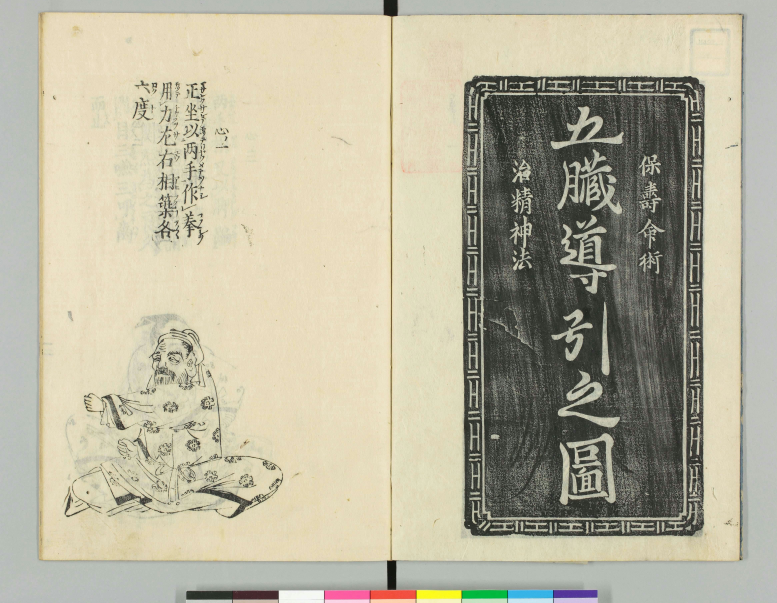 保壽命術
五臓導引之圖
治精神法
心ノ一
正坐以両手作拳
用力左右相築各
六度